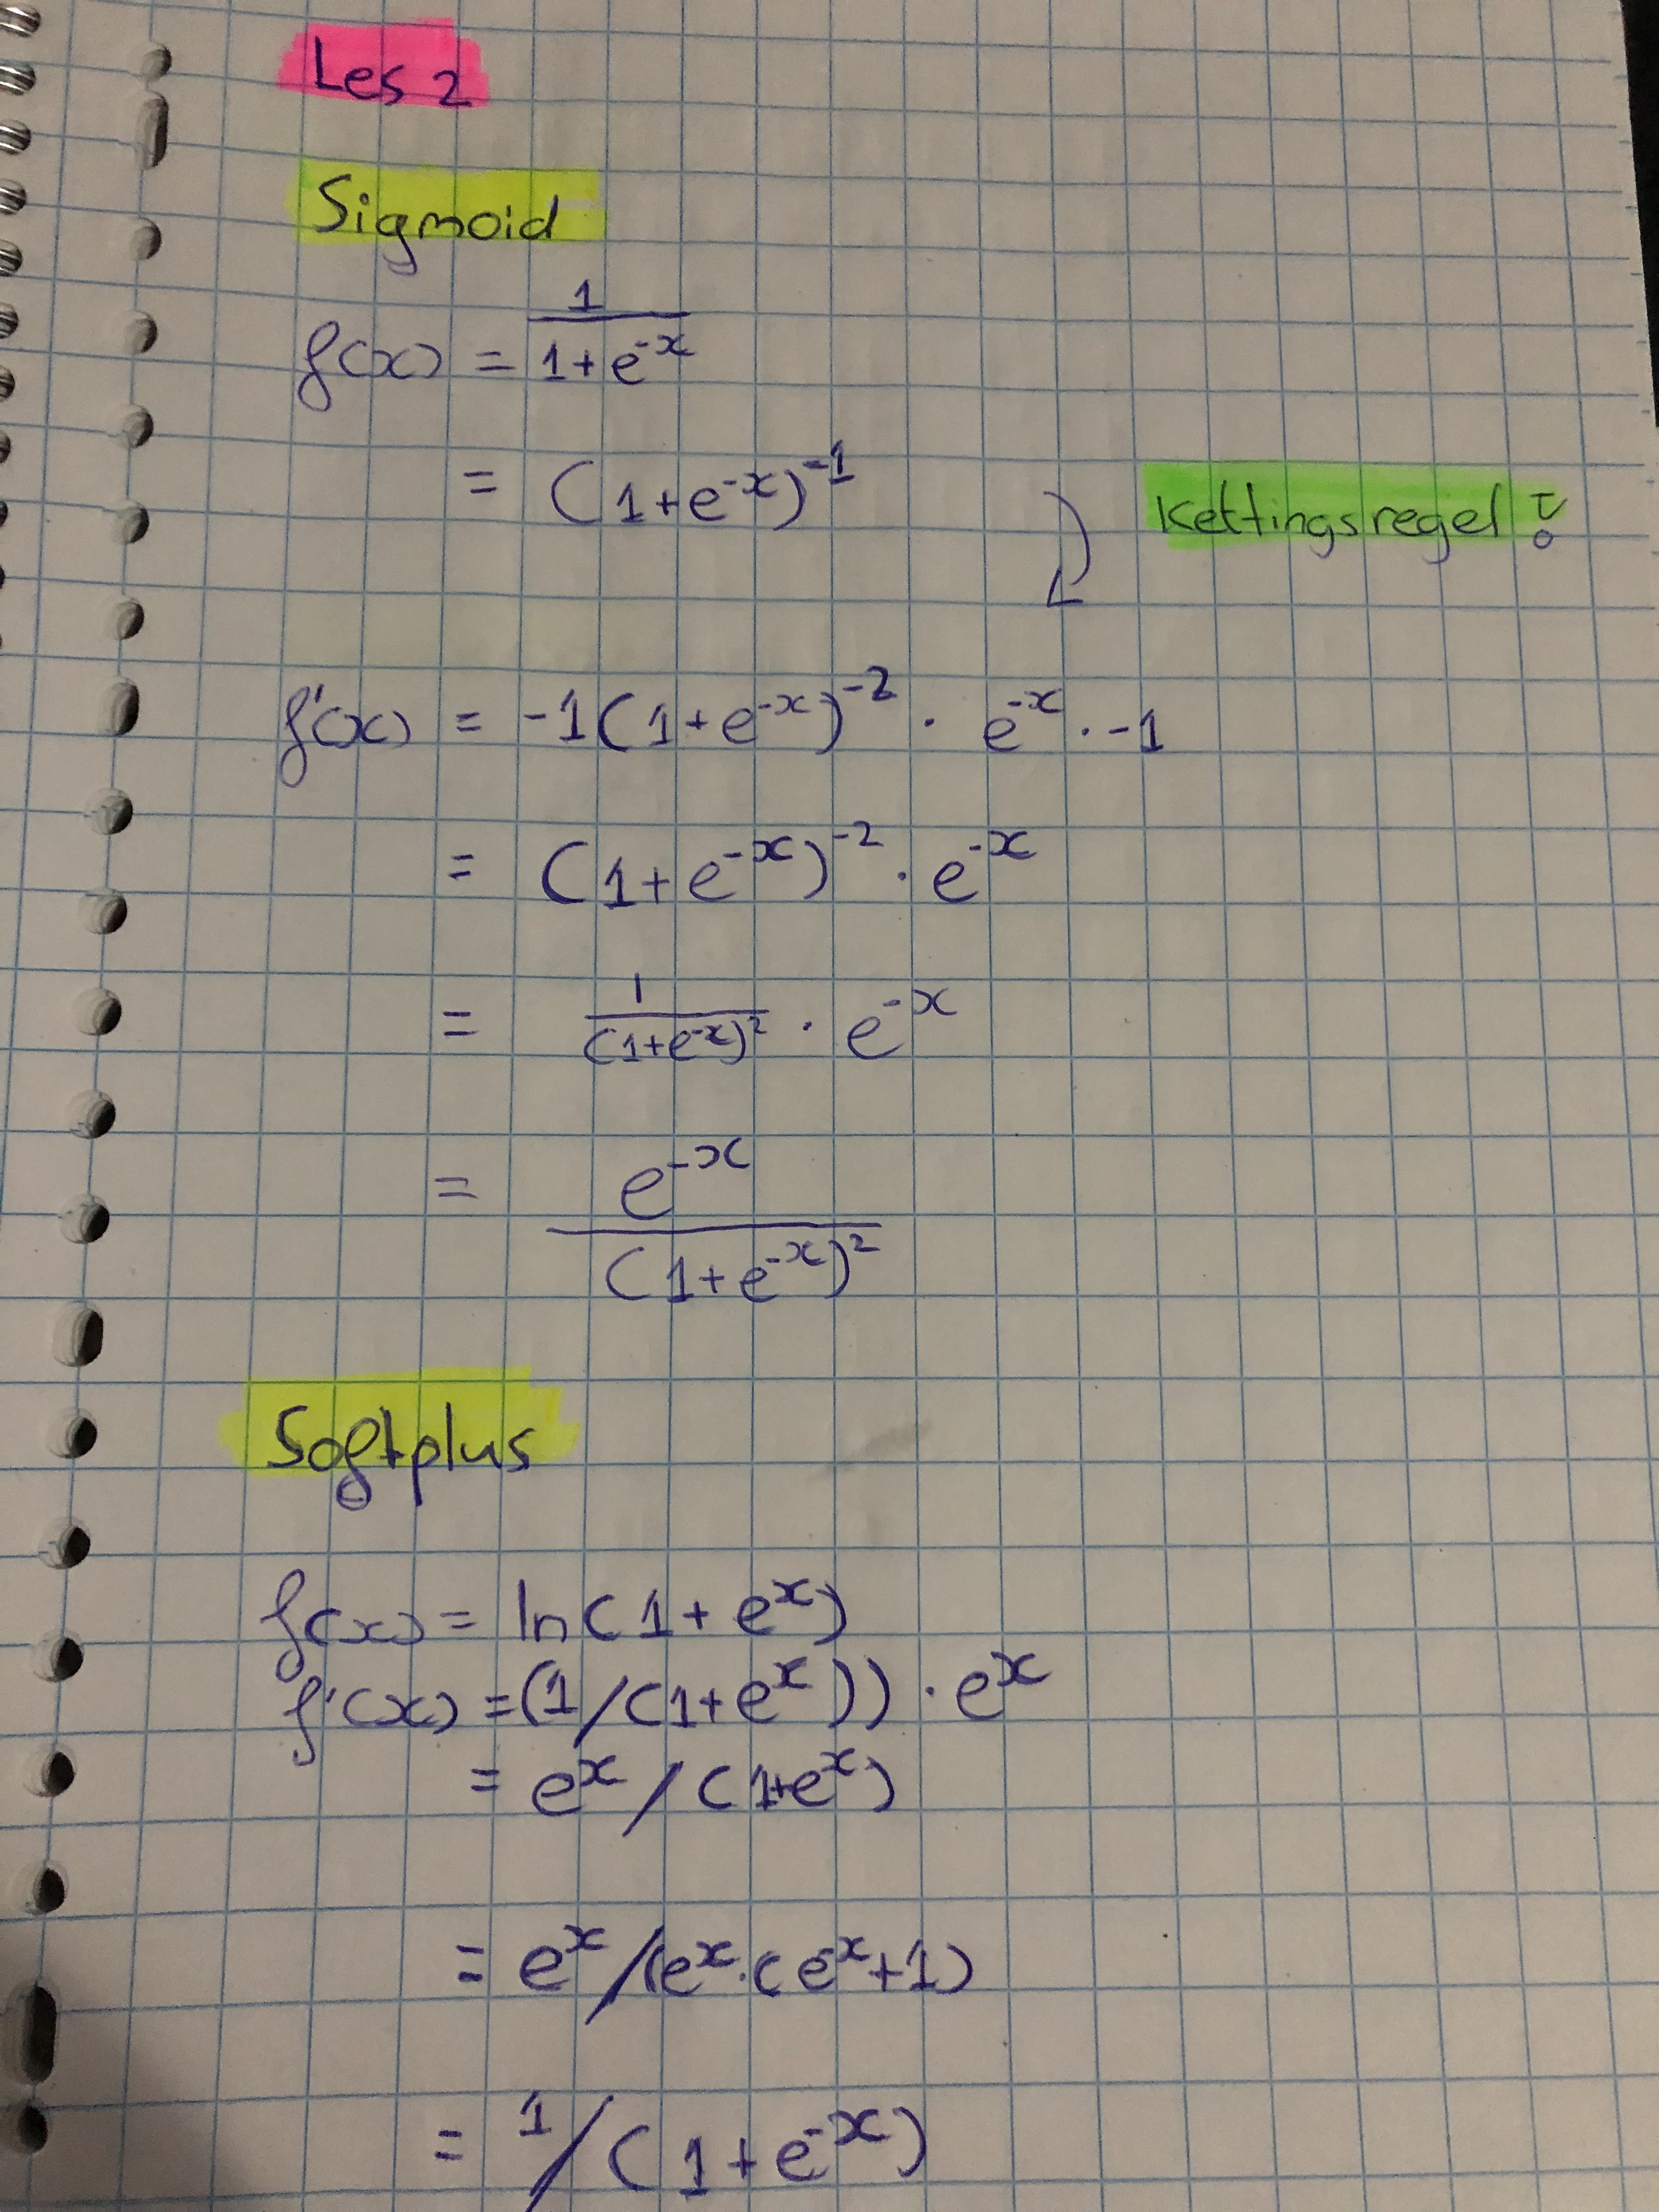 Les 2
Sigmoid
f(x) = 1/(1+e^-x)
= (1+e^-x)^-1
Kettingsregel!
f'(x) = -1(1+e^-x)^-2 · e^-x · -1
= (1+e^-x)^-2 · e^-x
= 1/(1+e^-x)^2 · e^-x
= e^-x/(1+e^-x)^2
Softplus
f(x) = ln(1+e^x)
f'(x) = (1/(1+e^x)) · e^x
= e^x/(1+e^x)
= e^x/(e^x·(e^-x+1)
= 1/(1+e^-x)